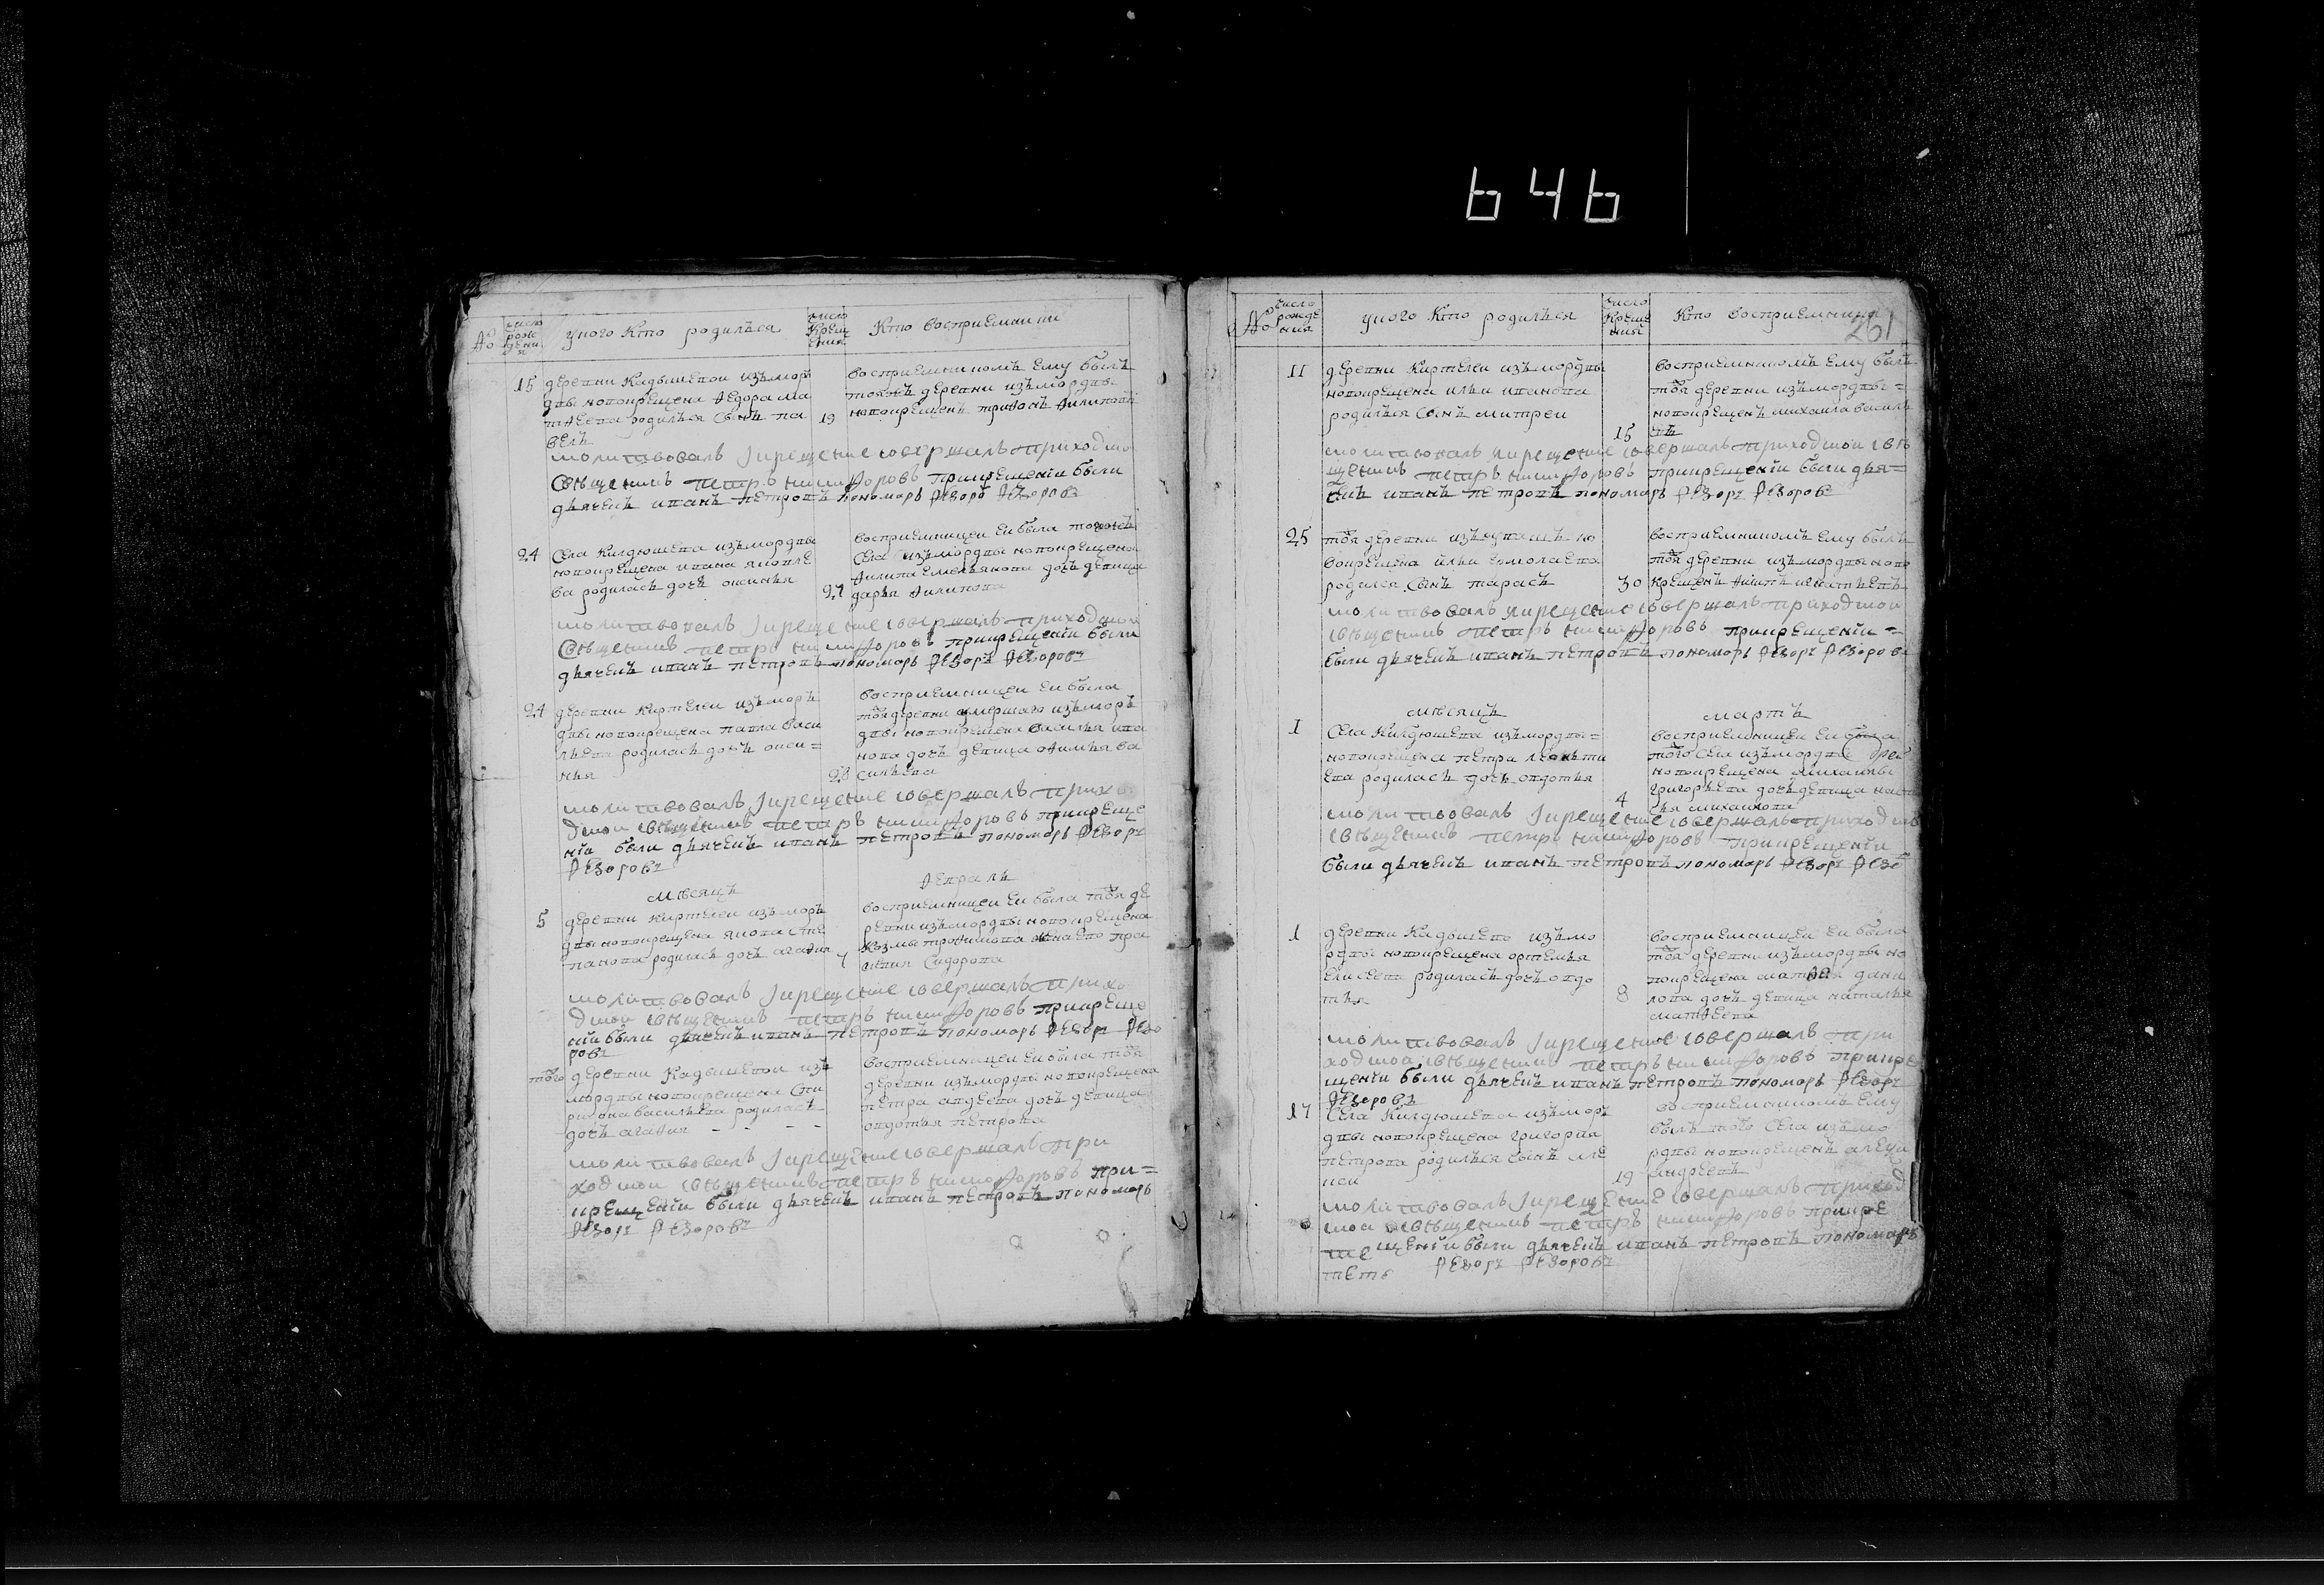 646
261
№
число рождения
у кого кто родился
число крещения
кто восприемники
15
деревни Кадышевои измор
двы новокрещена Федора ма
тфеева родился сынъ па
велъ
19
восприемникомъ ему былъ
тояжъ деревни измордвы
новокрещенъ трифонъ Филиповъ
молитвовалъ и крещение совершалъ приходскои
священникъ петръ никифоровъ при крещении были
дьячекъ иванъ петровъ пономарь Федоръ Федоровъ
24
села Килдюшева измордвы
новокрещена ивана яковле
ва родилась дочь оксинья
27
восприемницеи еи была тогожъ
села измордвы новокрещена
Филипа емельянова дочь девица
дарья Филипова
молитвовалъ и крещение совершалъ приходскои
священникъ петръ никифоровъ при крещении были
дьячекъ иванъ петровъ пономарь Федоръ Федоровъ
24
деревни Киртелеи изъ моръ
двы новокрещена павла васи
льева родилась дочь окси=
нья
28
восприемницеи еи была
тоя деревни умершаго изъ моръ
двы новокрещена василья ива
нова дочь девица офимья ва
сильева
молитвовалъ и крещение совершалъ прихо
дскои священникъ петръ никифоровъ при креще
нии были дьячекъ иванъ петровъ пономарь Федоръ
Федоровъ
месяцъ
Февраль
5
деревни Киртелеи изъ моръ
двы новокрещена якова сте
панова родилась дочь агафия
7
восприемницеи еи была тоя де
ревни измордвы новокрещена
козмы трофимова жена ево пра
сковия Сидорова
молитвовалъ и крещение совершалъ прихо
дскои священникъ петръ никифоровъ при креще
нии были дьячекъ иванъ петровъ пономарь Федоръ Федо
ровъ
того
деревни Кадышевои изъ
мордвы новокрещена Спи
ридона васильева родилась
дочь агафия
восприемницеи еи была тоя
деревни измордвы новокрещена
петра авдеева дочь девица
овдотья петрова
молитвовалъ и крещение совершалъ при
ходскои священникъ петръ никифоровъ при=
крещении были дьячекъ иванъ петровъ пономарь
Федоръ Федоровъ
№
число рождения
у кого кто родился
число крещения
кто восприемники
11
деревни Киртелеи изъ мордвы
новокрещена ильи иванова
родился сынъ митреи
15
восприемникомъ ему былъ
тоя деревни изъ мордвы=
новокрещенъ михаила василь
евъ
молитвовалъ и крещение совершалъ приходскои свя
щенникъ петръ никифоровъ при крещении были дья=
чекъ иванъ петровъ пономарь Федоръ Федоровъ
25
тоя деревни изъ чувашъ но
вокрещена ильи ермолаева
родился сынъ тарасъ
30
восприемникомъ ему былъ
тоя деревни изъ мордвы ново
крещенъ
молитвовалъ и крещение совершалъ приходскои
священникъ петръ никифоровъ при крещении=
были дьячекъ иванъ петровъ пономарь Федоръ Федоровъ
месяцъ
мартъ
1
Села Килдюшева изъ мордвы=
новокрещена петра леонъти
ева родилась дочь овдотья
4
восприемницеи еи была
того села измордвы
новокрещена михаилы
григорьева дочь девица
михаилова
молитвовалъ и крещение совершалъ приходскои
священникъ петръ никифоровъ при крещении
были дьячекъ иванъ петровъ пономарь Федоръ Федо
1
деревни Кадышево изъ мо
рдвы новокрещена ортемья
елисеева родилась дочь овдо
тья
8
восприемницеи еи была
тоя деревни изъ мордвы но
вокрещена матфея дани
лова дочь девица наталья
матфеева
молитвовалъ и крещение совершалъ при
ходскои священникъ петръ никифоровъ при кре
щении были дьячекъ иванъ петровъ пономарь Федоръ
Федоровъ
17
Села Килдюшева изъ моръ
двы новокрещена григория
петрова родился сынъ але
ксеи
19
восприемникомъ ему
былъ того села изъ мо
рдвы новокрещенъ алексеи
андреевъ
молитвовалъ и крещение совершалъ приход
скои священникъ петръ никифоровъ при кре
щении были дьячекъ иванъ петровъ пономарь
Федоръ Федоровъ